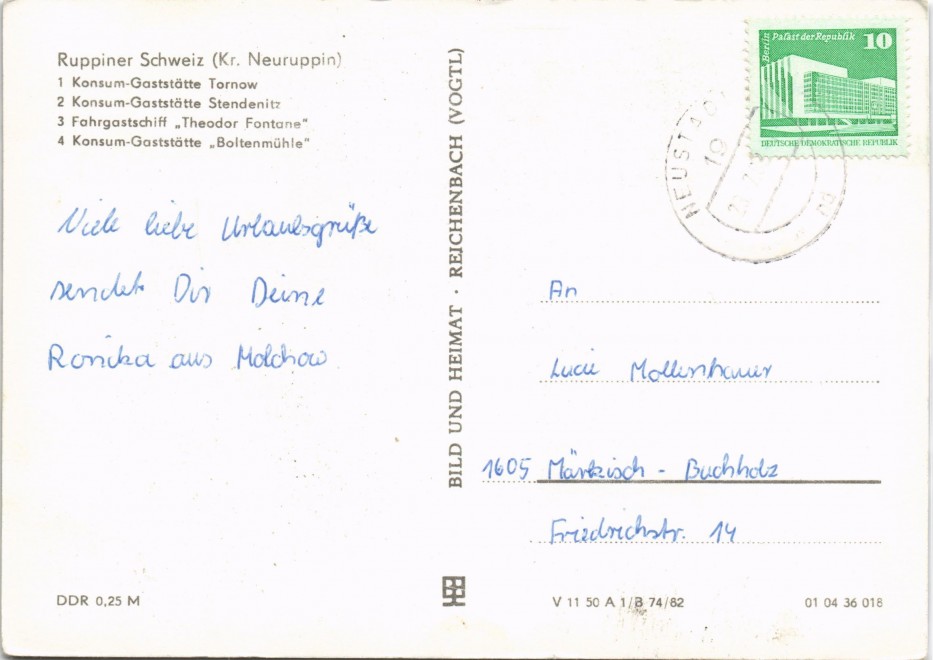 Ruppiner Schweiz (Kr. Neuruppin)
1 Konsum-Gaststätte Tornow
2 Konsum-Gaststätte Stendenitz
3 Fahrgastschiff „Theodor Fontane"
4 Konsum-Gaststätte „Boltenmühle"
Viele liebe Urlaubsgrüße
sendet Dir Deine
Ronika aus Molchow
DDR 0,25 M
BILD UND HEIMAT · REICHENBACH (VOGTL)
Berlin Palast der Republik 10
DEUTSCHE DEMOKRATISCHE REPUBLIK
19
An
Lucie Mollenhauer
1605 Märkisch - Buchholz
Friedrichstr. 14
V 11 50 A 1/B 74/82
01 04 36 018